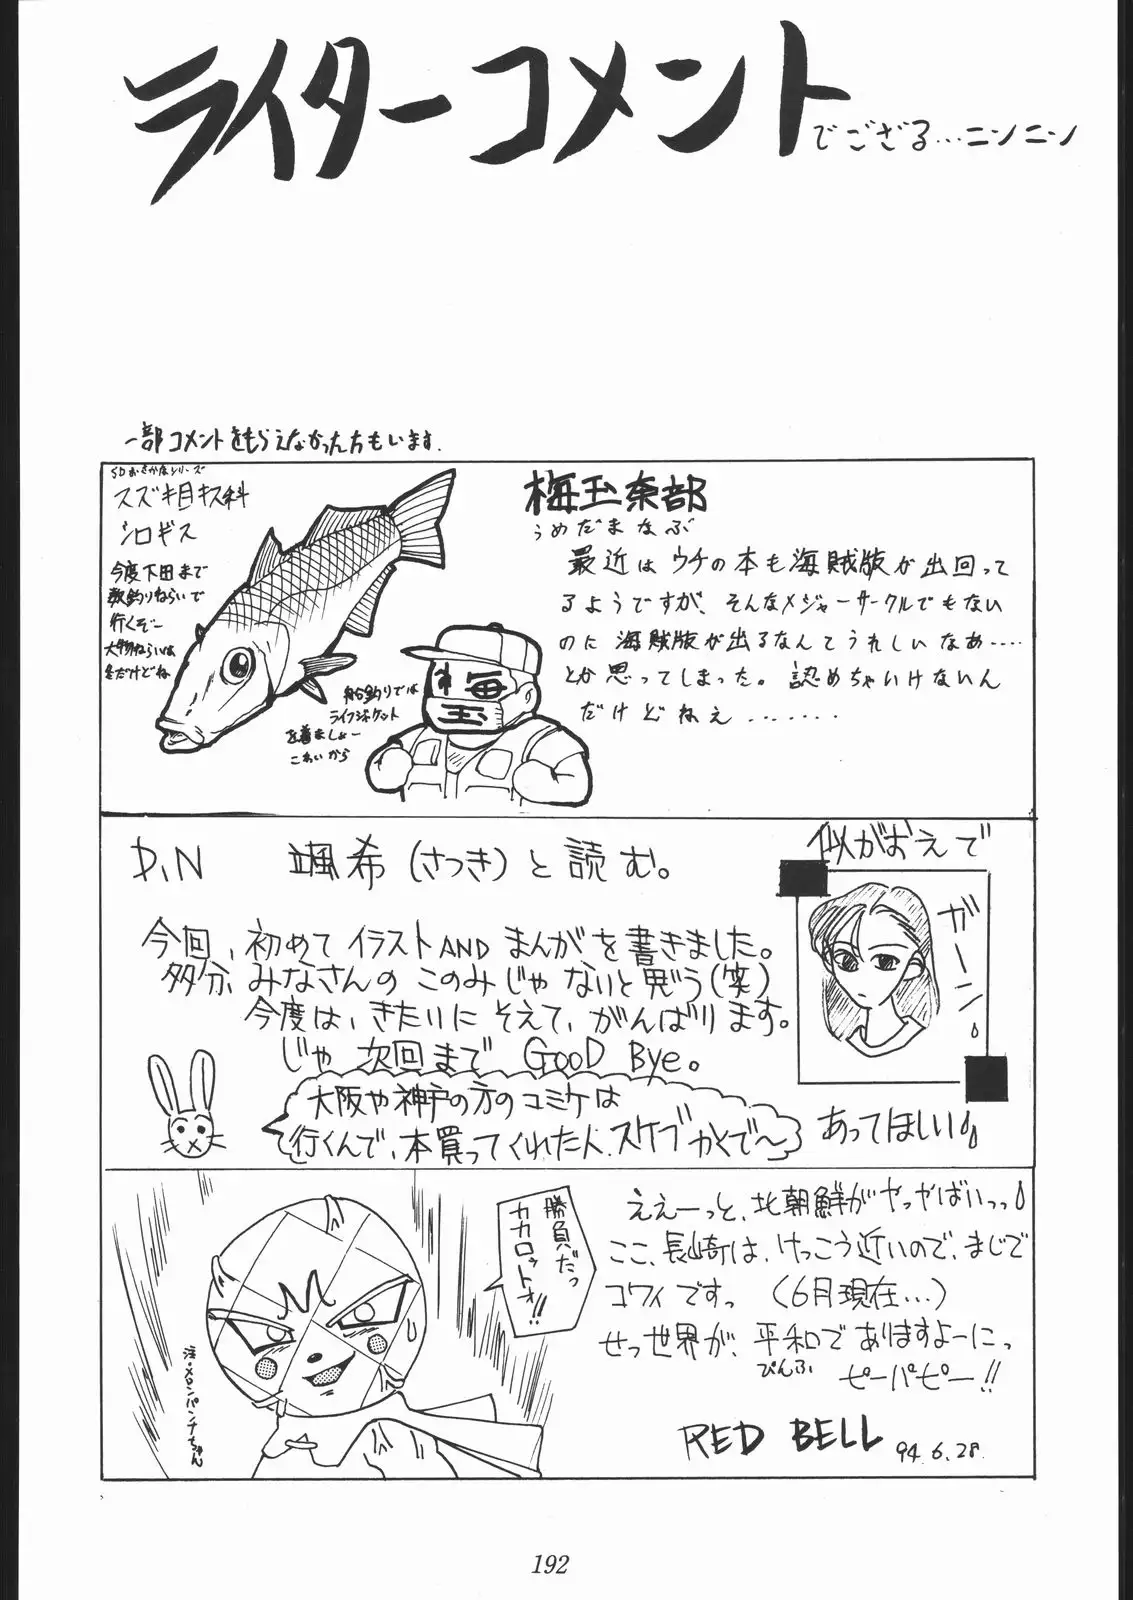 ライターコメントでござる…ニンニン
一部コメントをもらえなかった方もいます.
SDおさかなシリーズ
スズキ目キス科
シロギス
今度下田まで
数釣りねらいで
行くぞー
大物ねらいは
冬だけどね
船釣りでは
ライフジャケット
を着ましょー
こわいから
梅
玉
梅玉奈部
うめだまなぶ
最近はウチの本も海賊版が出回って
るようですが、そんなメジャーサークルでもない
のに海賊版が出るなんてうれしいなあ……
とか思ってしまった。認めちゃいけないん
だけどねえ…….
P.N 颯希(さつき)と読む。
今回、初めてイラストANDまんがを書きました。
多分、みなさんのこのみじゃないと思う(笑)
今度は、きたいにそえて、がんばります。
じゃ次回まで GOOD Bye。
大阪や神戸の方のコミケは
行くんで、本買ってくれた人、スケブかくで〜
似がおえで
ガーン
あってほしい
勝負だっ
カカロットォ!!
注・メロンパンナちゃん
ええーっと、北朝鮮がやっやばいっっ
ここ、長崎は、けっこう近いので、まじで
コワイですっ (6月現在…)
せっ世界が、平和でありますよーにっ
ぴんふ
ピーパピー!!
RED BELL 94.6.28.
192